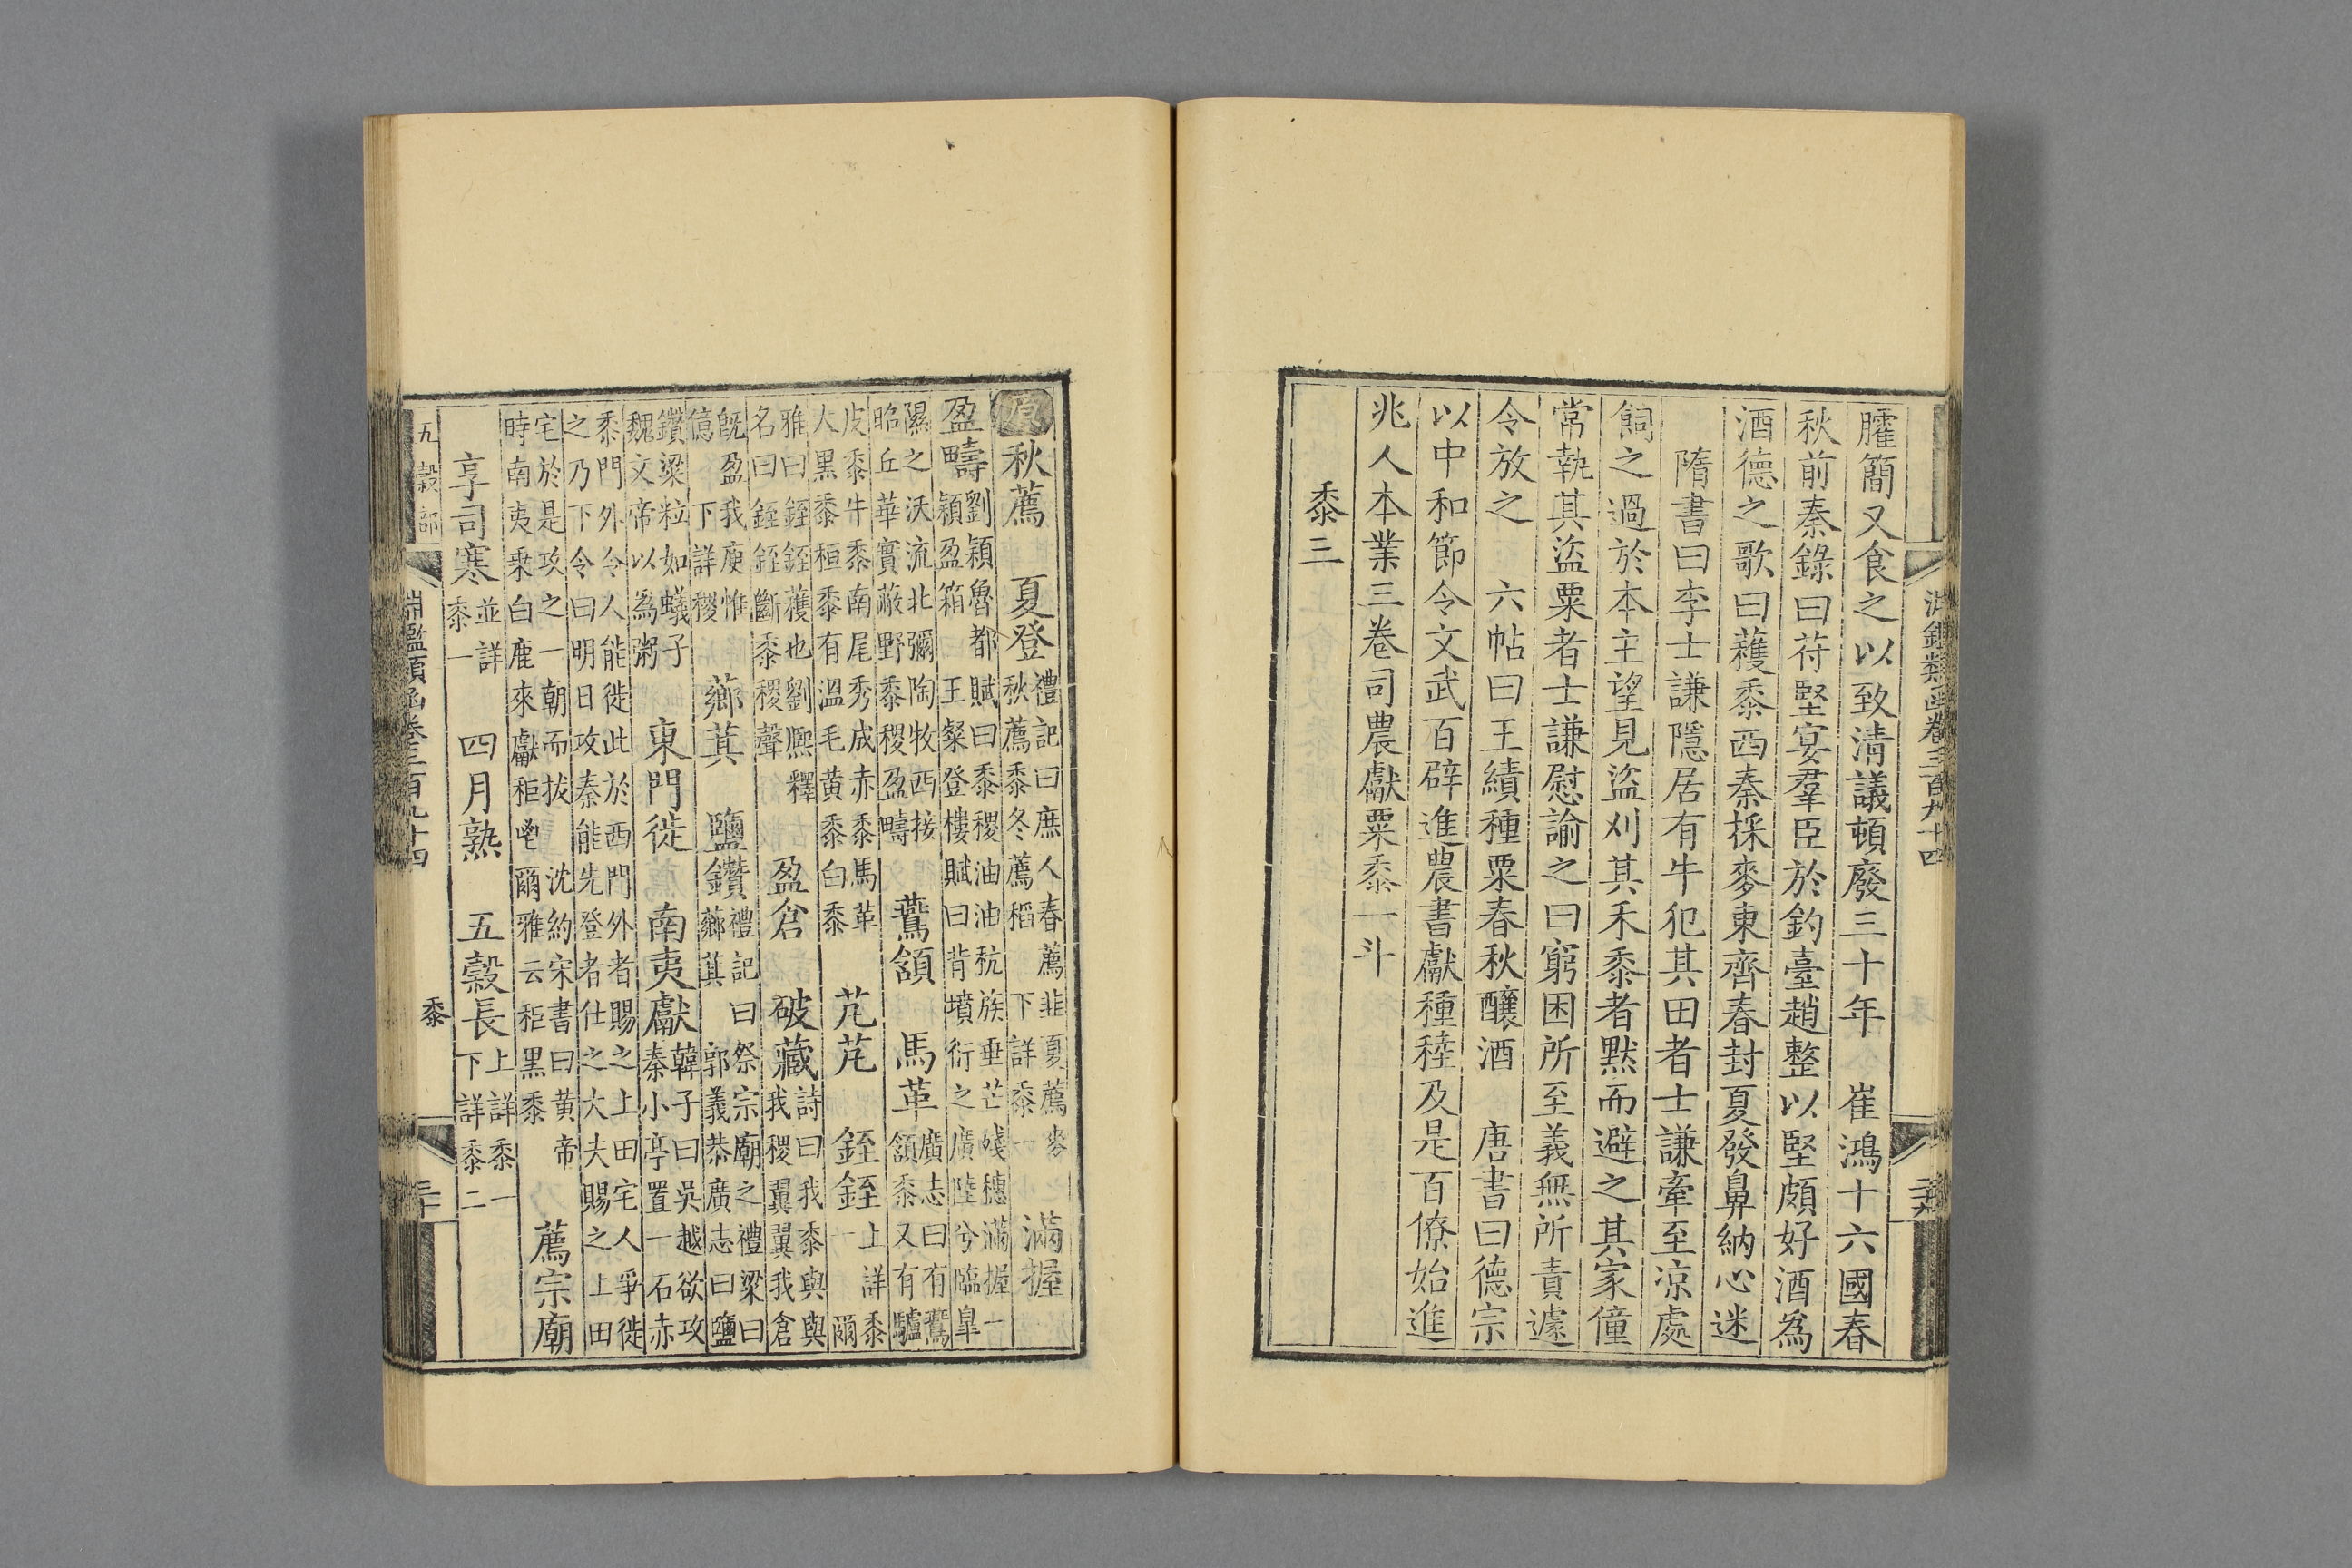 臛簡又食之以致清議頓廢三十年 崔鴻十六國春
秋前秦錄曰苻堅宴羣臣於釣臺趙整以堅頗好酒為
酒德之歌曰穫黍西秦採麥東齊春封夏發鼻納心迷
隋書曰李士謙隱居有牛犯其田者士謙牽至凉處
飼之過於本主望見盜刈其禾黍者默而避之其家僮
常執其盜粟者士謙慰諭之曰窮困所至義無所責遽
令放之 六帖曰王績種粟春秋釀酒 唐書曰德宗
以中和節令文武百辟進農書獻種稑及是百僚始進
兆人本業三卷司農獻粟黍一斗
黍三
原 秋薦 夏登 禮記曰庶人春薦韭夏薦麥秋薦黍冬薦稻 下詳黍一 滿握
盈疇 劉穎魯都賦曰黍稷油油秔族垂芒殘穗滿握一穎盈箱 王粲登樓賦曰背墳衍之廣陸兮臨皐
隰之沃流北彌陶牧西接昭丘華實蔽野黍稷盈疇 鴽頷 馬革 廣志曰有鴽頷黍又有驢
皮黍牛黍南尾秀成赤黍馬革大黑黍秬黍有溫毛黃黍白黍 芃芃 銍銍 上詳黍一 爾
雅曰銍銍穫也劉熈釋名曰銍銍斷黍稷聲 盈倉 破藏 詩曰我黍與與我稷翼翼我倉
旣盈我庾惟億 下詳稷 薌萁 鹽鑽 禮記曰祭宗廟之禮粱曰薌萁 郭義恭廣志曰鹽
鑽粱粒如蟻子魏文帝以為粥 東門徙 南夷獻 韓子曰吳越欲攻秦小亭置一石赤
黍門外令人能徙此於西門外者賜之上田宅人爭徙之乃下令曰明日攻秦能先登者仕之大夫賜之上田
宅於是攻之一朝而拔 沈約宋書曰黃帝時南夷乘白鹿來獻秬鬯爾雅云秬黑黍 薦宗廟
享司寒 並詳黍一 四月熟 五穀長 上詳黍一下詳黍二
五穀部
淵鑑類函卷三百九十四
黍